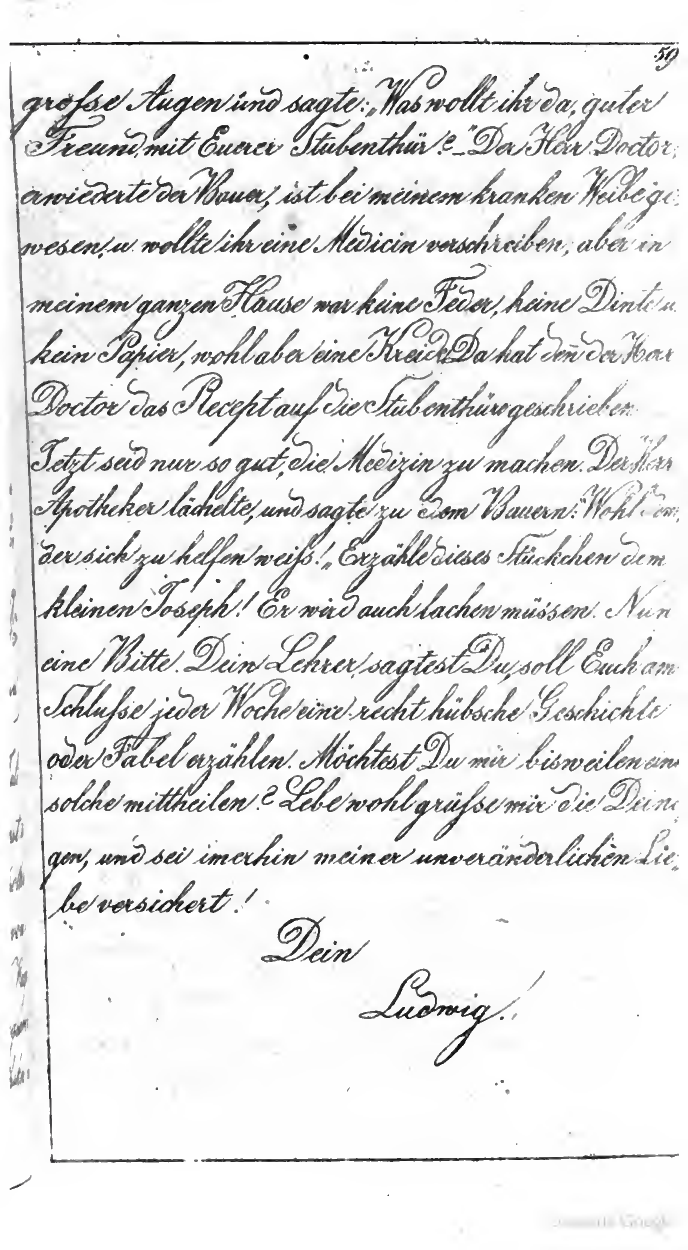 59
grosse Augen und sagte: „Was wollt ihr da, guter
Freund, mit Euerer Stubenthür?“ – „Der Herr Doctor,
erwiederte der Bauer, ist bei meinem kranken Weibe ge-
wesen, u wollte ihr eine Medicin verschreiben, aber in
meinem ganzen Hause war keine Feder, keine Dinte u
kein Papier, wohl aber eine Kreide. Da hat deñ der Herr
Doctor das Recept auf die Stubenthüre geschrieben
Jetzt seid nur so gut, die Medizin zu machen. Der Herr
Apotheker lächelte, und sagte zu dem Bauern: „Wohl dem,
der sich zu helfen weiß!„ Erzähle dieses Stückchen dem
kleinen Joseph! Er wird auch lachen müssen. Nun
eine Bitte. Dein Lehrer, sagtest Du, soll Euch am
Schlusse jeder Woche eine recht hübsche Geschichte
oder Fabel erzählen. Möchtest Du mir bisweilen eine
solche mittheilen? Lebe wohl grüsse mir die Deini
gen, und sei imerhin meiner unveränderlichen Lie-
be versichert!
Dein
Ludwig.